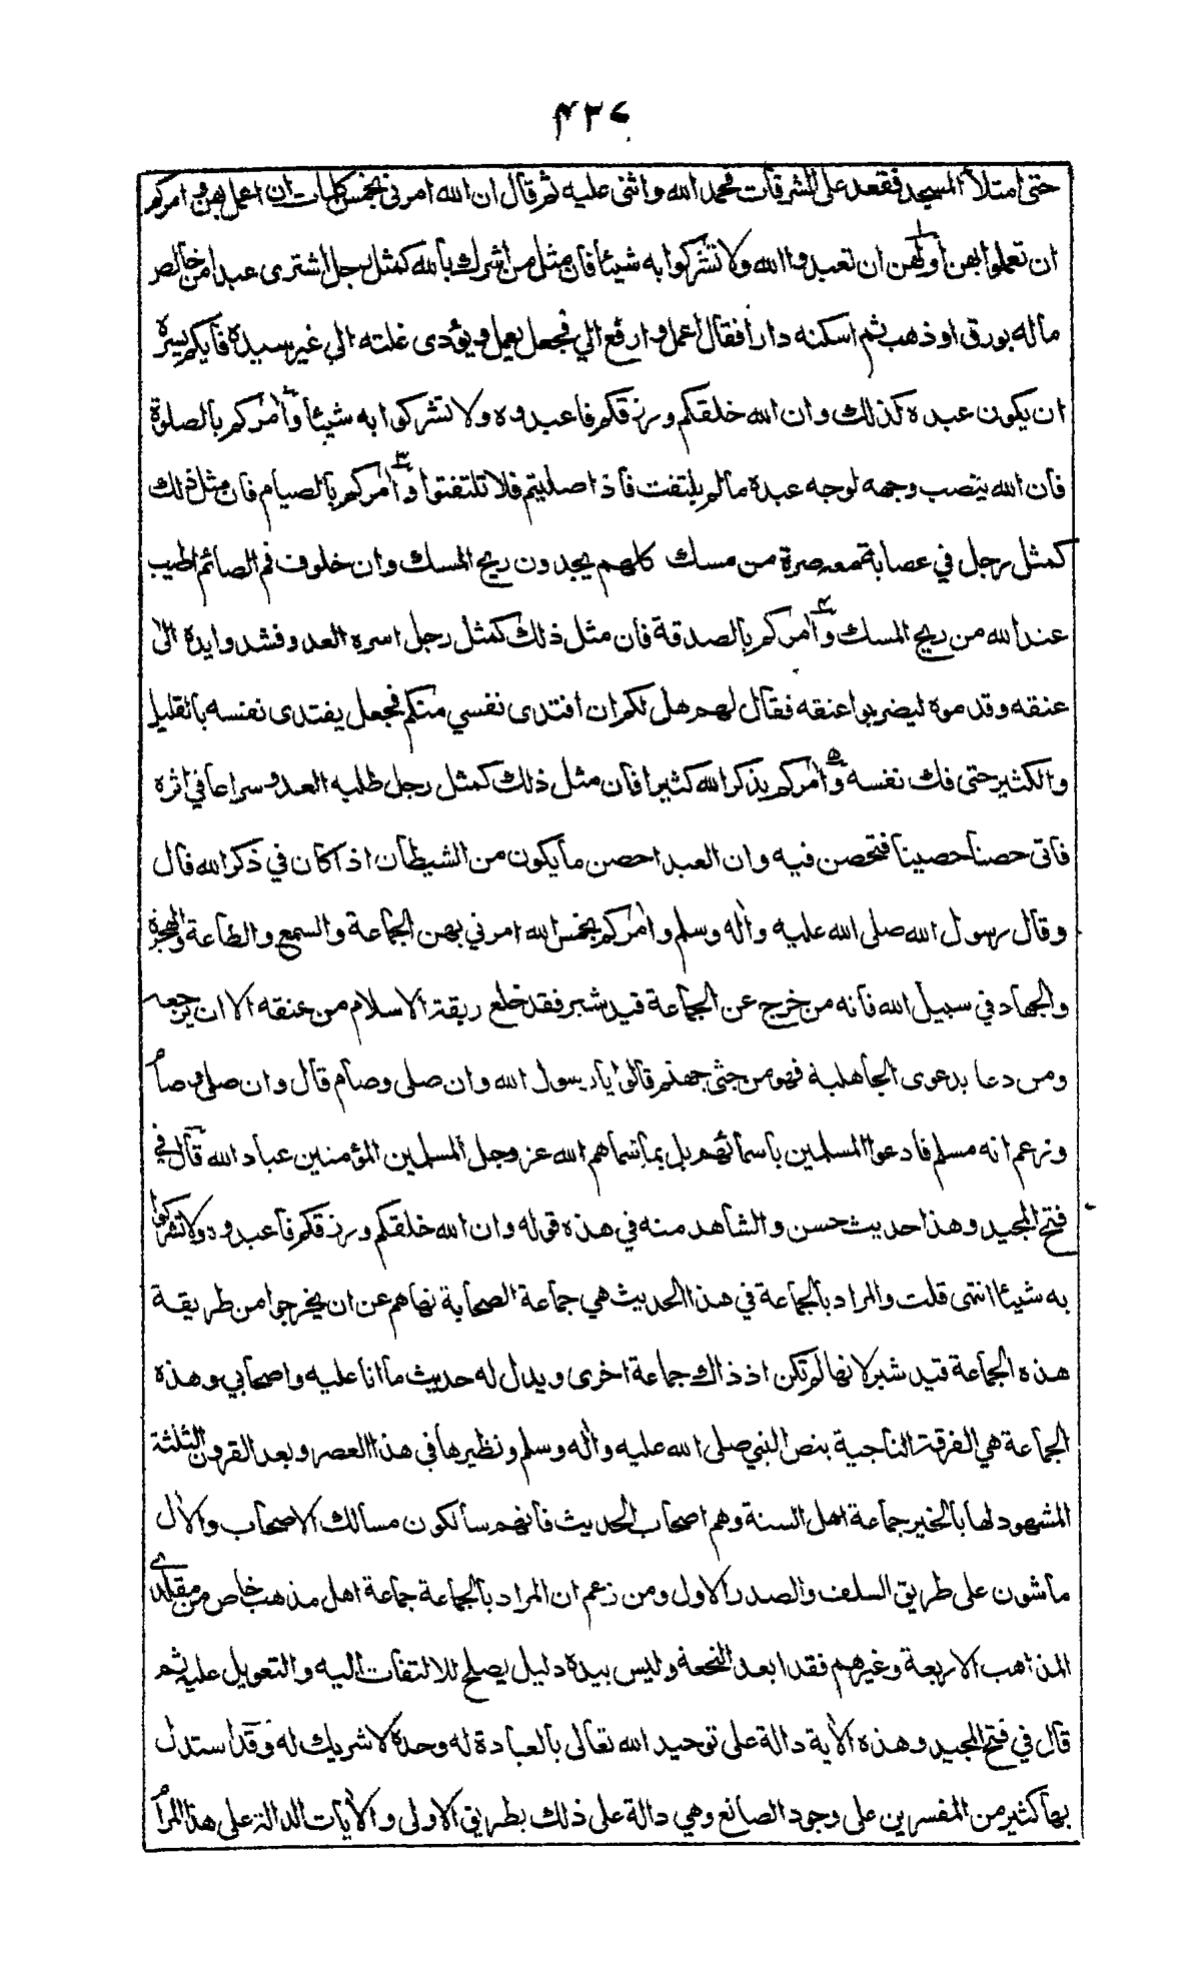 ٤٣٧
حتى امتلأ المسجد فقعد على الشرفات فحمد الله واثنى عليه ثم قال ان الله امرني بخمس كلمات ان اعمل بهن وامركم
ان تعملوا بهن أولهن ان تعبدوا الله ولا تشركوا به شيئا فان مثل من اشرك بالله كمثل رجل اشترى عبدا من خالص
ماله بورق او ذهب ثم اسكنه دارا فقال اعمل وارفع الي فجعل يعمل ويؤدى غلته الي غير سيده فايكم يسره
ان يكون عبده كذلك وان الله خلقكم ورزقكم فاعبدوه ولا تشركوا به شيئا وأمركم بالصلوة
فان الله ينصب وجهه لوجه عبده ما لم يلتفت فاذا صليتم فلا تلتفتوا وأمركم بالصيام فان مثل ذلك
كمثل رجل في عصابة معه صرة من مسك كلهم يجدون ريح المسك وان خلوف فم الصائم اطيب
عند الله من ريح المسك وأمركم بالصدقة فان مثل ذلك كمثل رجل اسره العدو فشدوا يده الى
عنقه وقدموه ليضربوا عنقه فقال لهم هل لكم ان افتدى نفسي منكم فجعل يفتدى نفسه بالقليل
والكثير حتى فك نفسه وأمركم بذكر الله كثيرا فان مثل ذلك كمثل رجل طلبه العدو سراعا في اثره
فاتى حصنا حصينا فتحصن فيه وان العبد احصن ما يكون من الشيطان اذا كان في ذكر الله قال
وقال رسول الله صلى الله عليه واٰله وسلم واٰمركم بخمس الله امرني بهن الجماعة والسمع والطاعة والهجرة
والجهاد في سبيل الله فانه من خرج عن الجماعة قيد شبر فقد خلع ربقة الاسلام من عنقه الا ان يرجع
ومن دعا بدعوى الجاهلية فهو من جثي جهنم قالوا يا رسول الله وان صلى وصام قال وان صلى وصام
وزعم انه مسلم فادعوا المسلمين باسمائهم بل بما سماهم الله عز وجل المسلمين المؤمنين عباد الله قال في
فتح المجيد وهذا حديث حسن والشاهد منه في هذه قوله وان الله خلقكم ورزقكم فاعبدوه ولا تشركوا
به شيئا انتهى قلت والمراد بالجماعة في هذا الحديث هي جماعة الصحابة نهاهم عن ان يخرجوا من طريقة
هذه الجماعة قيد شبر لانها لم تكن اذ ذاك جماعة اخرى ويدل له حديث ما انا عليه واصحابي وهذه
الجماعة هي الفرقة الناجية بنص النبي صلى الله عليه واٰله وسلم ونظيرها في هذا العصر وبعد القرون الثلثة
المشهود لها بالخير جماعة اهل السنة وهم اصحاب الحديث فانهم سالكون مسالك الاصحاب والاٰل
ماشون على طريق السلف والصدر الاول ومن زعم ان المراد بالجماعة جماعة اهل مذهب خاص من مقلدي
المذاهب الاربعة وغيرهم فقد ابعد النجعة وليس بيده دليل يصلح للالتفات اليه والتعويل عليه ثم
قال في فتح المجيد وهذه الاٰية دالة على توحيد الله تعالى بالعبادة له وحده لا شريك له وقد استدل
بها كثير من المفسرين على وجود الصانع وهي دالة على ذلك بطريق الاولى والاٰيات الدالة على هذا المرام